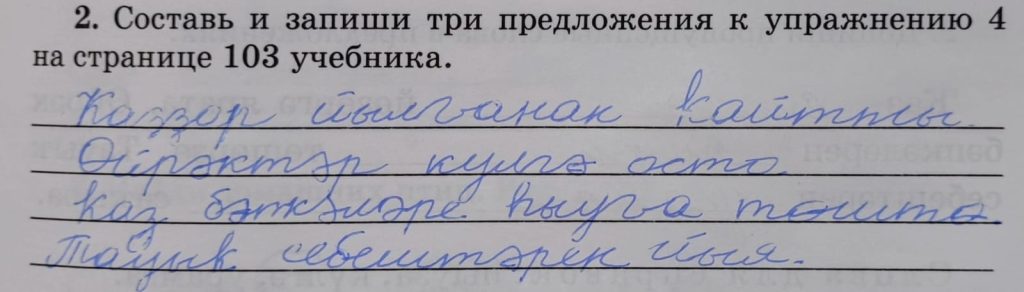 2. Составь и запиши три предложения к упражнению 4
на странице 103 учебника.
Каҙҙар йылғанан ҡайтты.
Өйрәктәр күлгә осто.
Каз бәпкәләре һыуға төштө.
Тауыҡ себештәрен йыя.